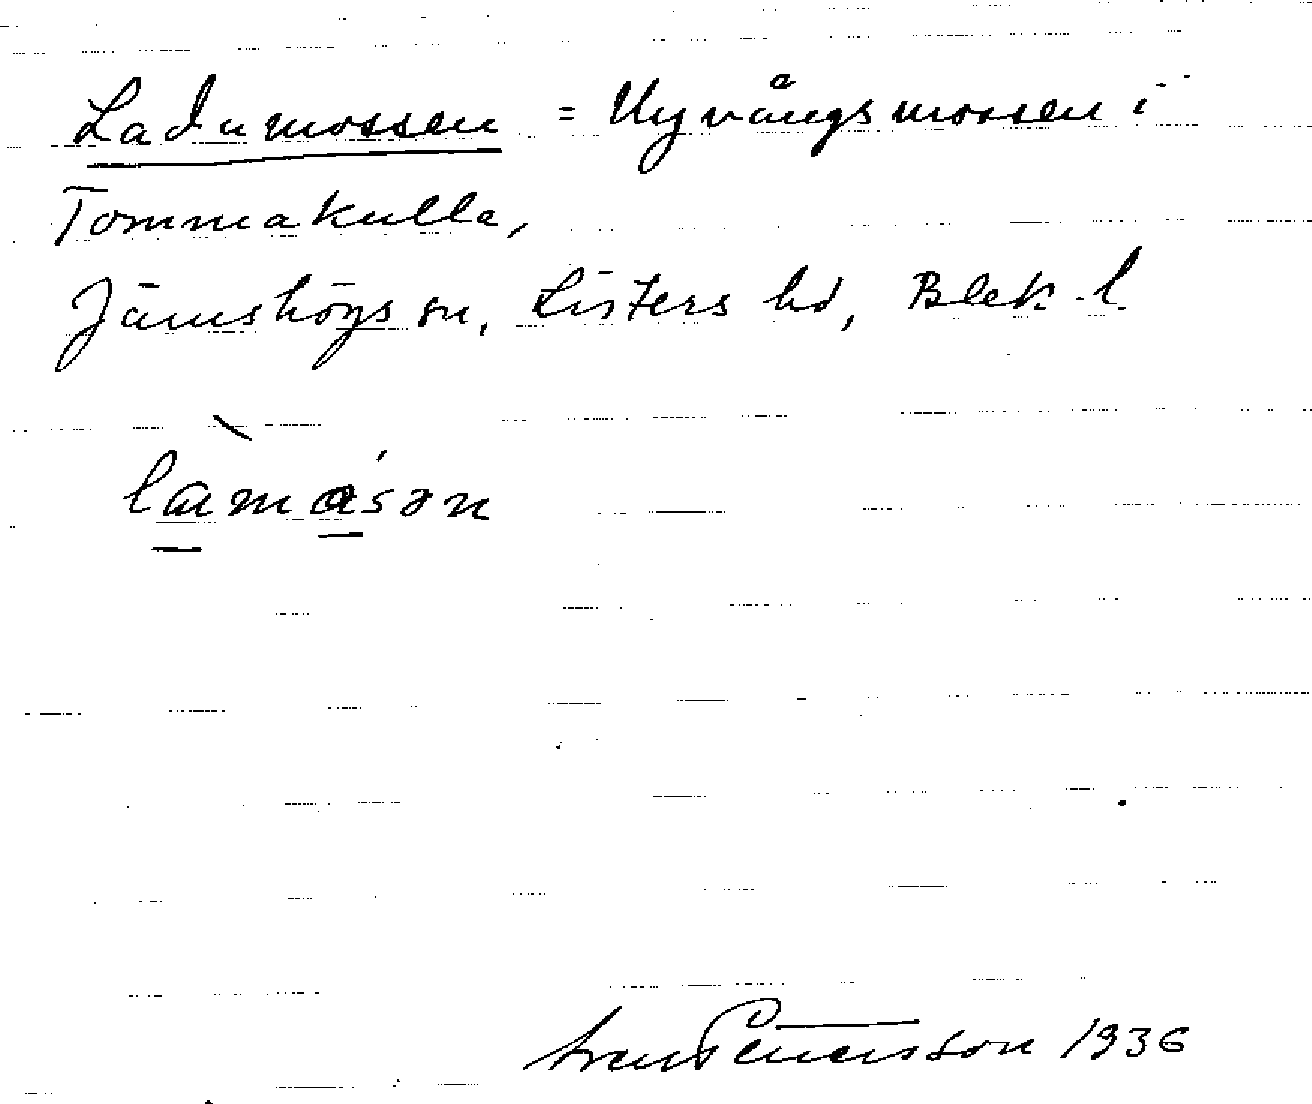 Ladumossen = Nyvångsmossen i
Tommakulla,
Jämshögs sn, Listers hd, Blek. l.
làmásən
Pettersson 1936